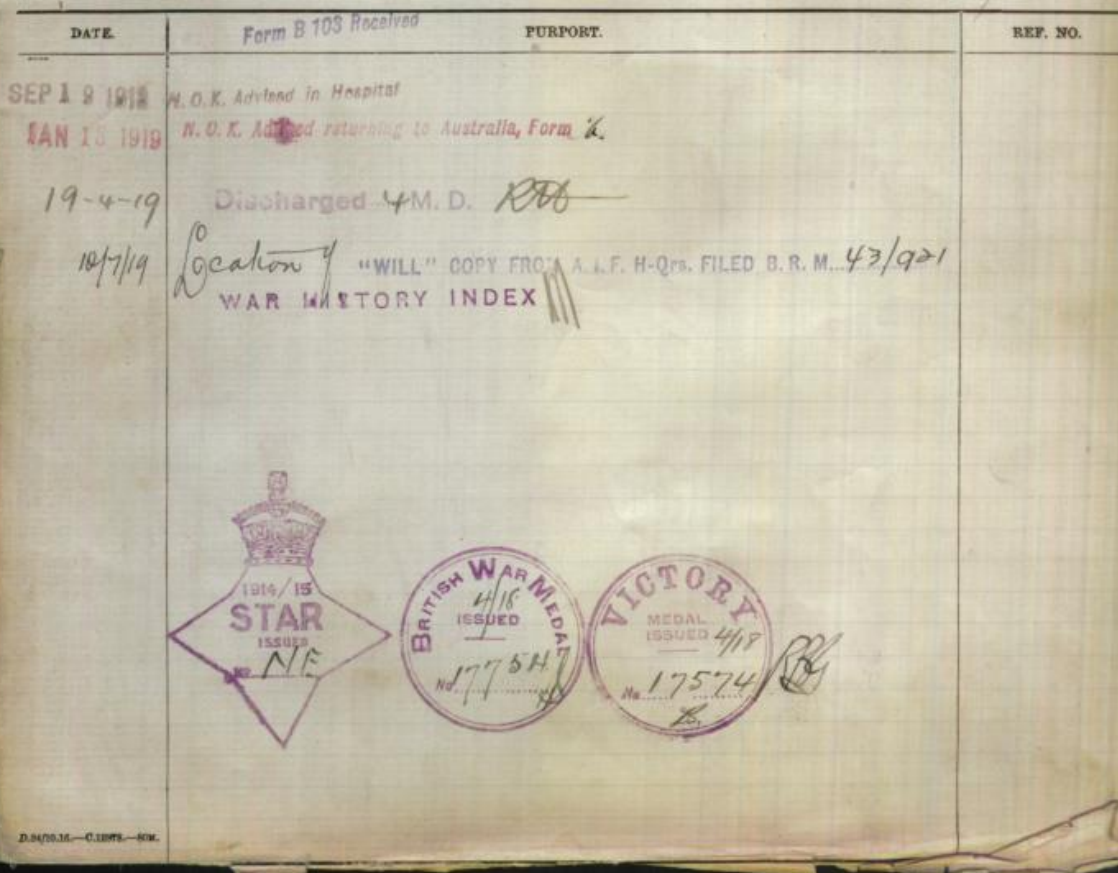 DATE. PURPORT. REF. NO.
Form B 103 Received
SEP 19 1918 N.O.K. Advised in Hospital
JAN 15 1919 N.O.K. Advised returning to Australia, Form
19-4-19 Discharged 4 M. D.
Location of "WILL" COPY FROM A.I.F. H-Qrs. FILED B. R. M... 43/921
WAR HISTORY INDEX
1914/15
STAR
ISSUED
No N/E
BRITISH WAR MEDAL
4/18
ISSUED
No 177547
VICTORY
MEDAL
ISSUED 4/18
No 17574